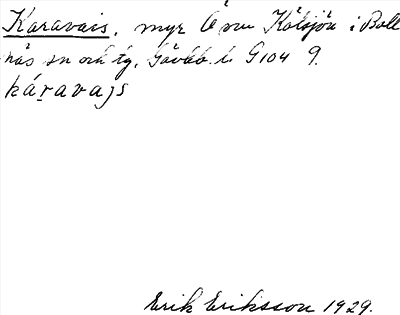 Karavais, myr Ö om Kölsjön i Boll
näs sn och tg. Gävleb. l. G104 9.
káravajs
Erik Eriksson 1929.